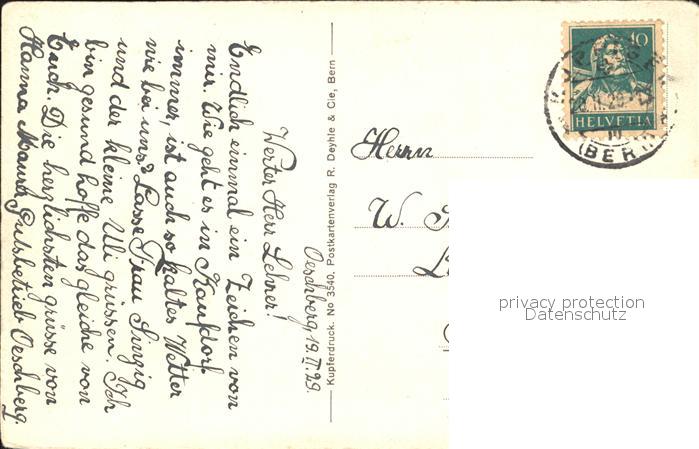 Oeschberg, 19. II. 29.
Werter Herr Lehrer!
Endlich einmal ein Zeichen von
mir. Wie geht es in Kaufdorf
immer, ist auch so kaltes Wetter
wie bei uns? Lasse Frau Sinzig
und der kleine Uli grüssen. Ich
bin gesund hoffe das gleiche von
Euch. Die herzlichsten grüsse von
Hanna Gutsbetrieb Oeschberg
Kupferdruck. No 3540. Postkartenverlag R. Deyhle & Cie, Bern
10
HELVETIA
(BERN)
Herrn
W.
privacy protection
Datenschutz